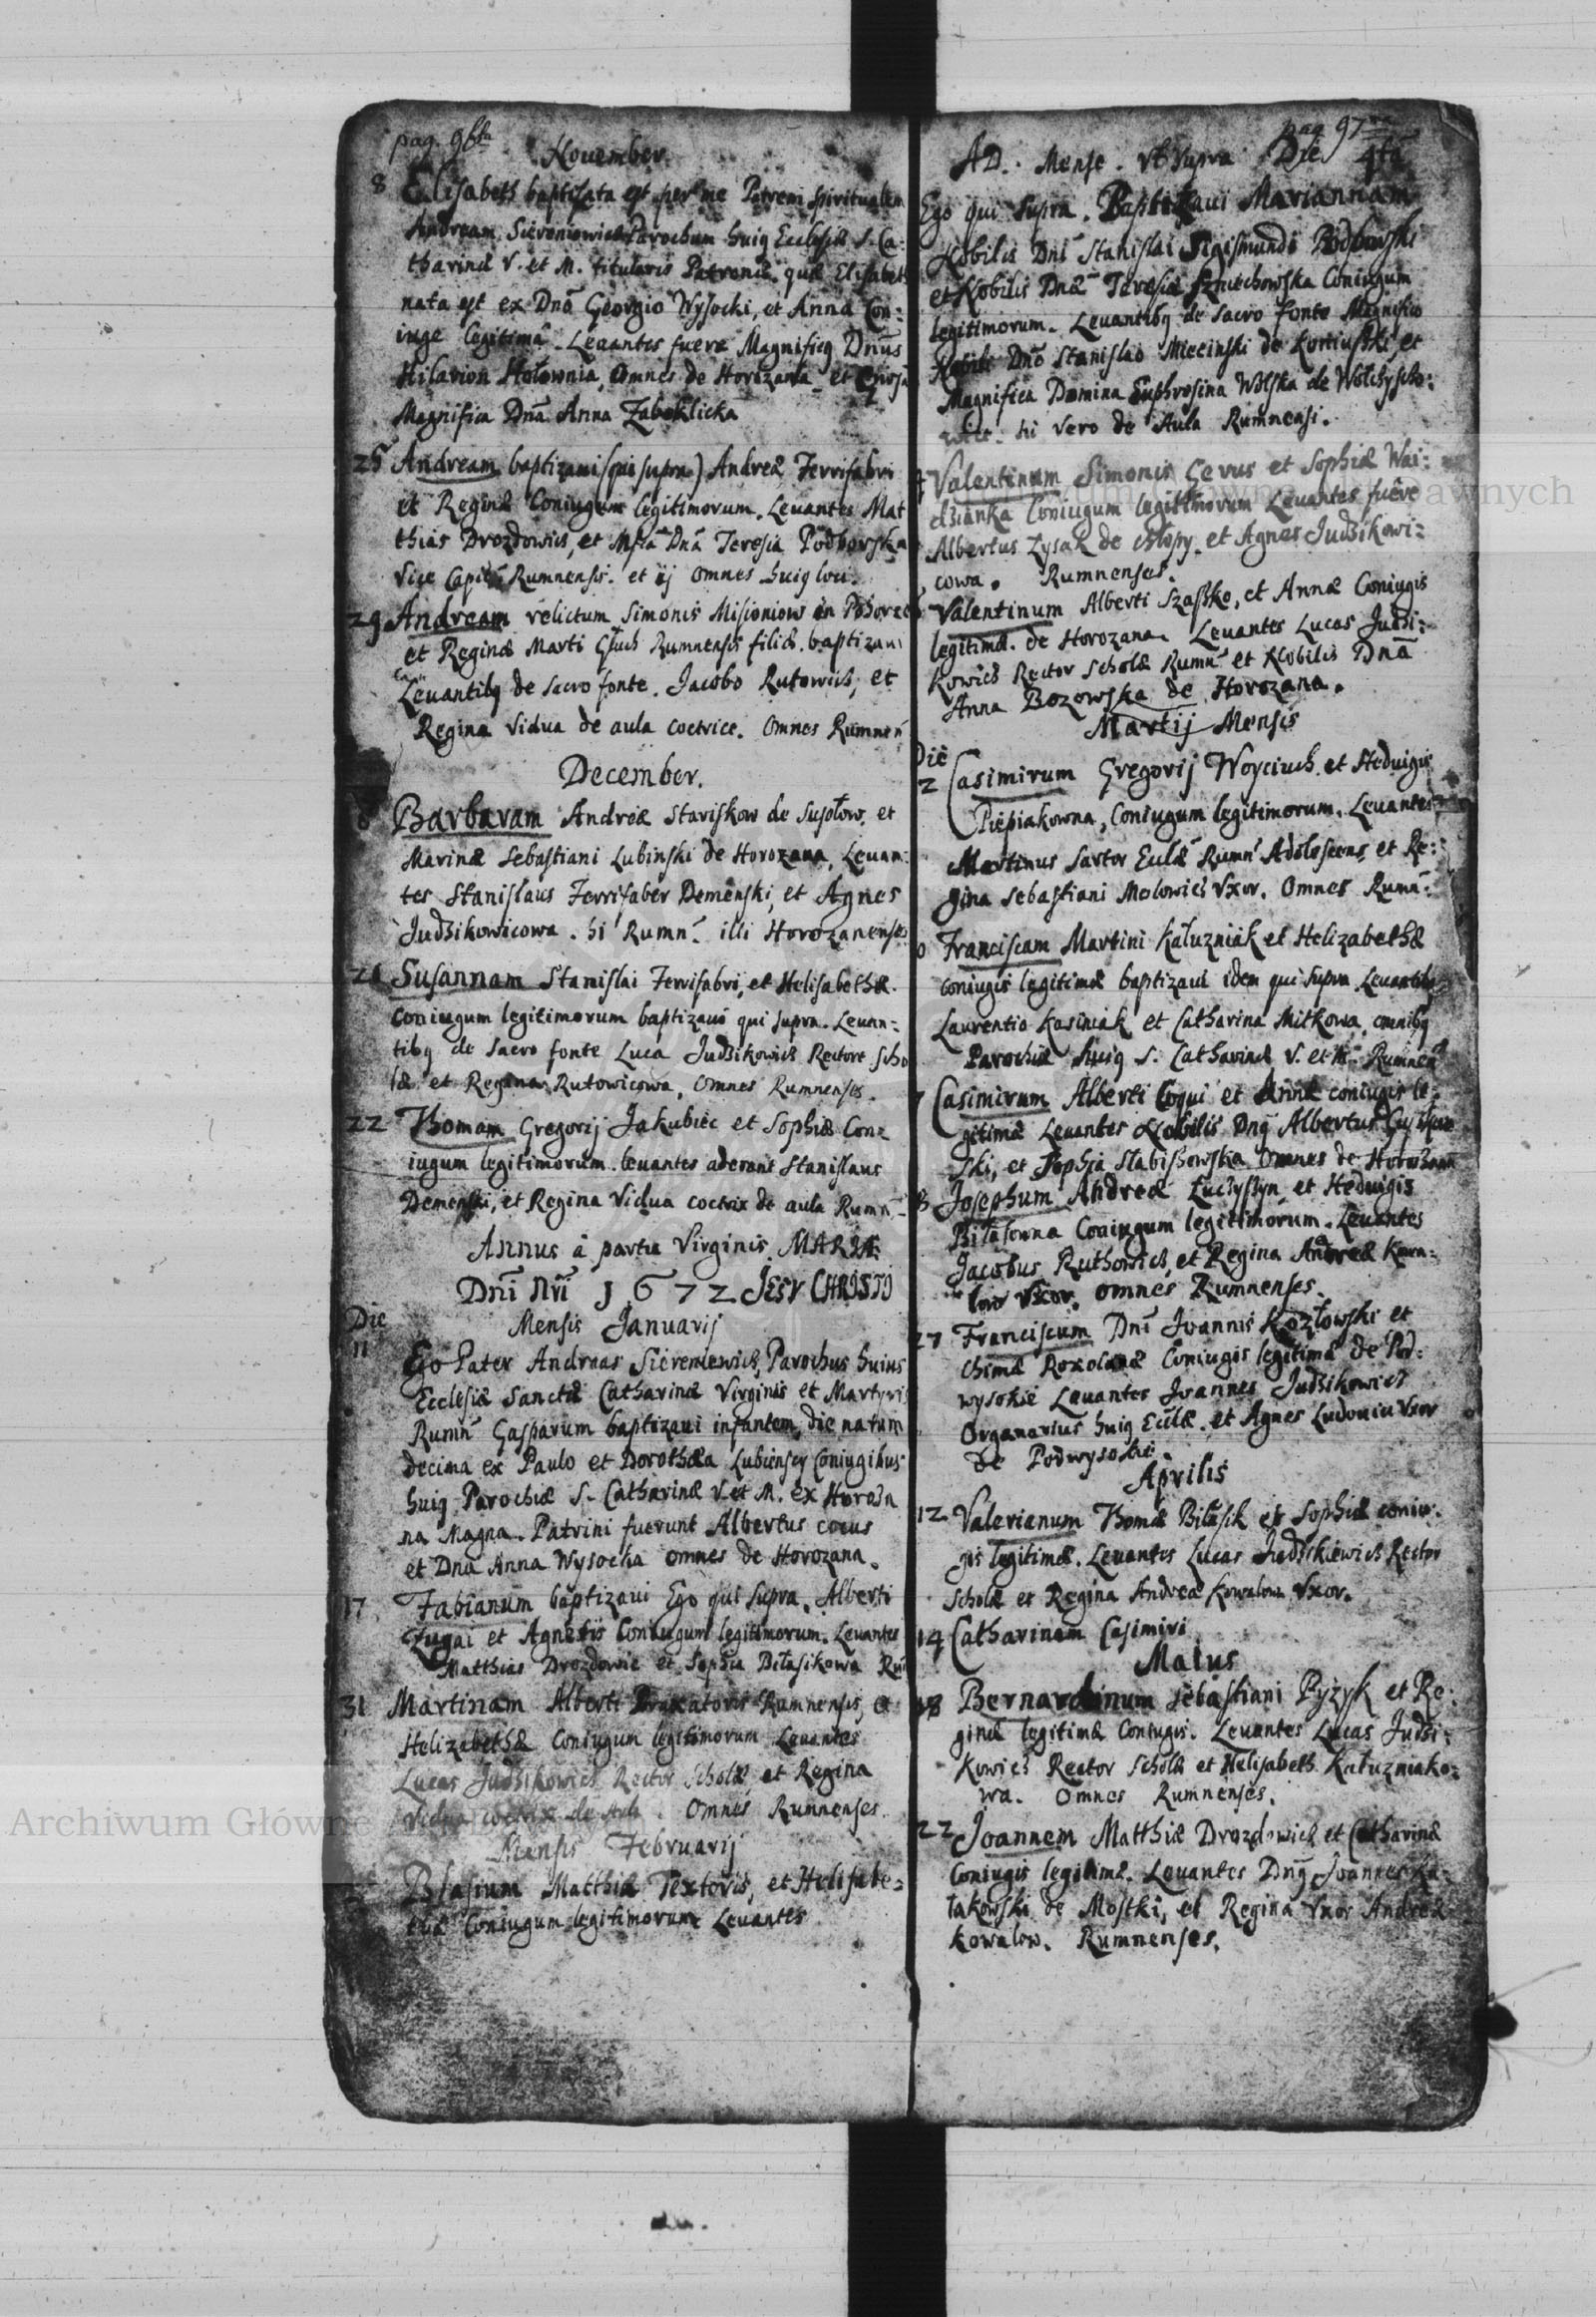 pag. 96ta
November.
8 Elisabeth baptisata est per me Patrem spiritualem
Andream Siereniewicz Parochum huiq Ecclesiæ S. Ca:
tharinæ V. et M. titularis Patronæ. quæ Elisabet
nata est ex Dnō Georgio Wysocki, et Anna Con:
iuge legitimâ. Leuantes fuere Magnificq Dnūs
Hilarion Hołownia, omnes de Horozana et
Magnifica Dnā Anna Zaboklicka
25 Andream baptizaui (qui supra) Andreæ Ferrifabri
et Reginæ Coniugum legitimorum. Leuantes Mat
thias Drozdowicz, et Dnā Teresia Podhorska
Vice Rumnensis. et ij omnes huiq loci.
29 Andream relictum Simonis Misioniow in
et Reginæ Marti Głuch Rumnensis filiæ. baptizaui
Leuantibq de sacro fonte. Jacobo Rutowicz, et
Regina Vidua de aula coctrice. Omnes Rumnen
December.
8 Barbaram Andreæ Stariskow de Susołow. et
Marinæ Sebastiani Lubinski de Horozana, Leuan:
tes Stanislaus Ferrifaber Demenski, et Agnes
Judzikowicowa. hi Rumn. illi Horozanenses
21 Susannam Stanislai Ferrifabri, et Helisabethæ.
coniugum legitimorum baptizaui qui supra. Leuan=
tibq de sacro fonte Luca Judzikowicz Rectore Scho
læ et Regina Rutowicowa, Omnes Rumnenses.
22 Thomam Gregorij Jakubiec et Sophiæ Con=
iugum legitimorum. leuantes aderant Stanislaus
Demenski, et Regina Vidua coctrix de aula Rumn.
Annus â partu Virginis MARIÆ
Dnī Nrī 1672 JESV CHRISTI
Die Mensis Januarij
11 Ego Pater Andreas Siereniewicz, Parochus huius
Ecclesiæ Sanctæ Catharinæ Virginis et Martyris
Rumn. Gasparum baptizaui infantem, die natum
decima ex Paulo et Dorothæa Lubienscy Coniugibus
huiq Parochiæ S. Catharinæ V. et M. ex Horoza
na Magna. Patrini fuerunt Albertus cocus
et Dna Anna Wysocka omnes de Horozana.
17 Fabianum baptizaui Ego qui supra. Alberti
Zugai et Agnetis Coniugum legitimorum. Leuantes
Matthias Drozdowic et Sophia Biłasikowa Ru
31 Martinam Alberti Rumnensis, et
Helizabethæ Coniugum legitimorum Leuantes
Lucas Judzikowicz Rector Scholæ et Regina
Vidua coctrix de Aula. Omnes Rumnenses.
Mensis Februarij
Blasium Matthiæ Textoris, et Helisabe=
thæ Coniugum legitimorum Leuantes
pag 97ma
AD. Mense. Vt supra Die 4ta
Ego qui supra. Baptizaui Mariannam
Nobilis Dnī Stanislai Sigismundi Podhorski
et Nobilis Dnæ Teresiæ Coniugum
legitimorum. Leuantibq de sacro fonte Magnifico
Nobili Dnō Stanislao Miecinski de et
Magnifica Domina Euphrosina Wolska de
hi vero de Aula Rumnensi.
Valentinum Simonis Gerus et Sophiæ Wai:
dzianka Coniugum legitimorum Leuantes fuêre
Albertus Zysak de chłopy. et Agnes Judzikowi:
cowa. Rumnenses.
Valentinum Alberti Szaszko, et Annæ Coniugis
legitimæ. de Horozana. Leuantes Lucas Judzi:
kowicz Rector Scholæ Rumn. et Nobilis Dnā
Anna Bozowska de Horozana.
Martij Mensis
Die
2 Casimirum Gregorij Woyciuch et Heduigis
Piepiakowna, Coniugum legitimorum. Leuantes
Martinus Sartor Eccłæ Rumn. Adolescens, et Re:
gina Sebastiani Molowicz Vxor. Omnes Rumn.
0 Franciscam Martini Kałuzniak et Helizabethæ
coniugis legitimæ baptizaui idem qui supra Leuantibq
Laurentio Kasiniak et Catharina Mitkowa. omnibq
Parochiæ huiq S. Catharinæ V. et M. Rumnen
7 Casimirum Alberti Coqui et Annæ coniugis le:
gitimæ Leuantes Nobilis Dnq Albertus
ski, et Sophia Slabiszowska Omnes de Horozana
8 Josephum Andreæ et Heduigis
Biłasowna Coniugum legitimorum. Leuantes
Jacobus Ruthowicz, et Regina Andreæ Kowa:
low Vxor. omnes Rumnenses.
27 Franciscum Dnī Joannis Kozłowski et
Chimæ Roxolanæ Coniugis legitimæ de Pod:
wysokie Leuantes Joannes Judzikowicz
Organarius huiq Eccłæ. et Agnes Ludouici Vxor
de Podwysokie.
Aprilis
12 Valerianum Thomæ Biłasik et Sophiæ coniu:
gis legitimæ. Leuantes Lucas Judzikiewicz Rector
Scholæ et Regina Andreæ Kowalow Vxor.
14 Catharinam Casimiri
Maius
18 Bernardinum Sebastiani Pyzyk et Re:
ginæ legitimæ Coniugis. Leuantes Lucas Judzi:
kowicz Rector Scholæ et Helisabeth Kałuzniako:
wa. Omnes Rumnenses.
22 Joannem Matthiæ Drozdowicz et Catharinæ
Coniugis legitimæ. Leuantes Dnq Joannes Ka:
łakowski de Mostki, et Regina Vxor Andreæ
Kowalow. Rumnenses.
Archiwum Główne